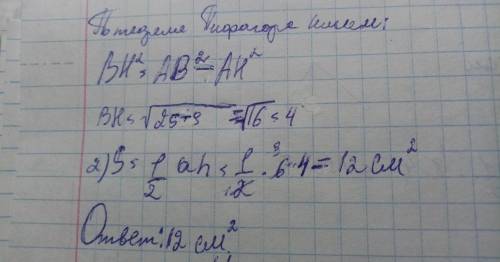 По теореме Пифагора имеем:
BH² = AB² - AH²
BH = √25-9 = √16 = 4
2) S = 1/2 ah = 1/2 · 6 · 4 = 12 см²
Ответ: 12 см²